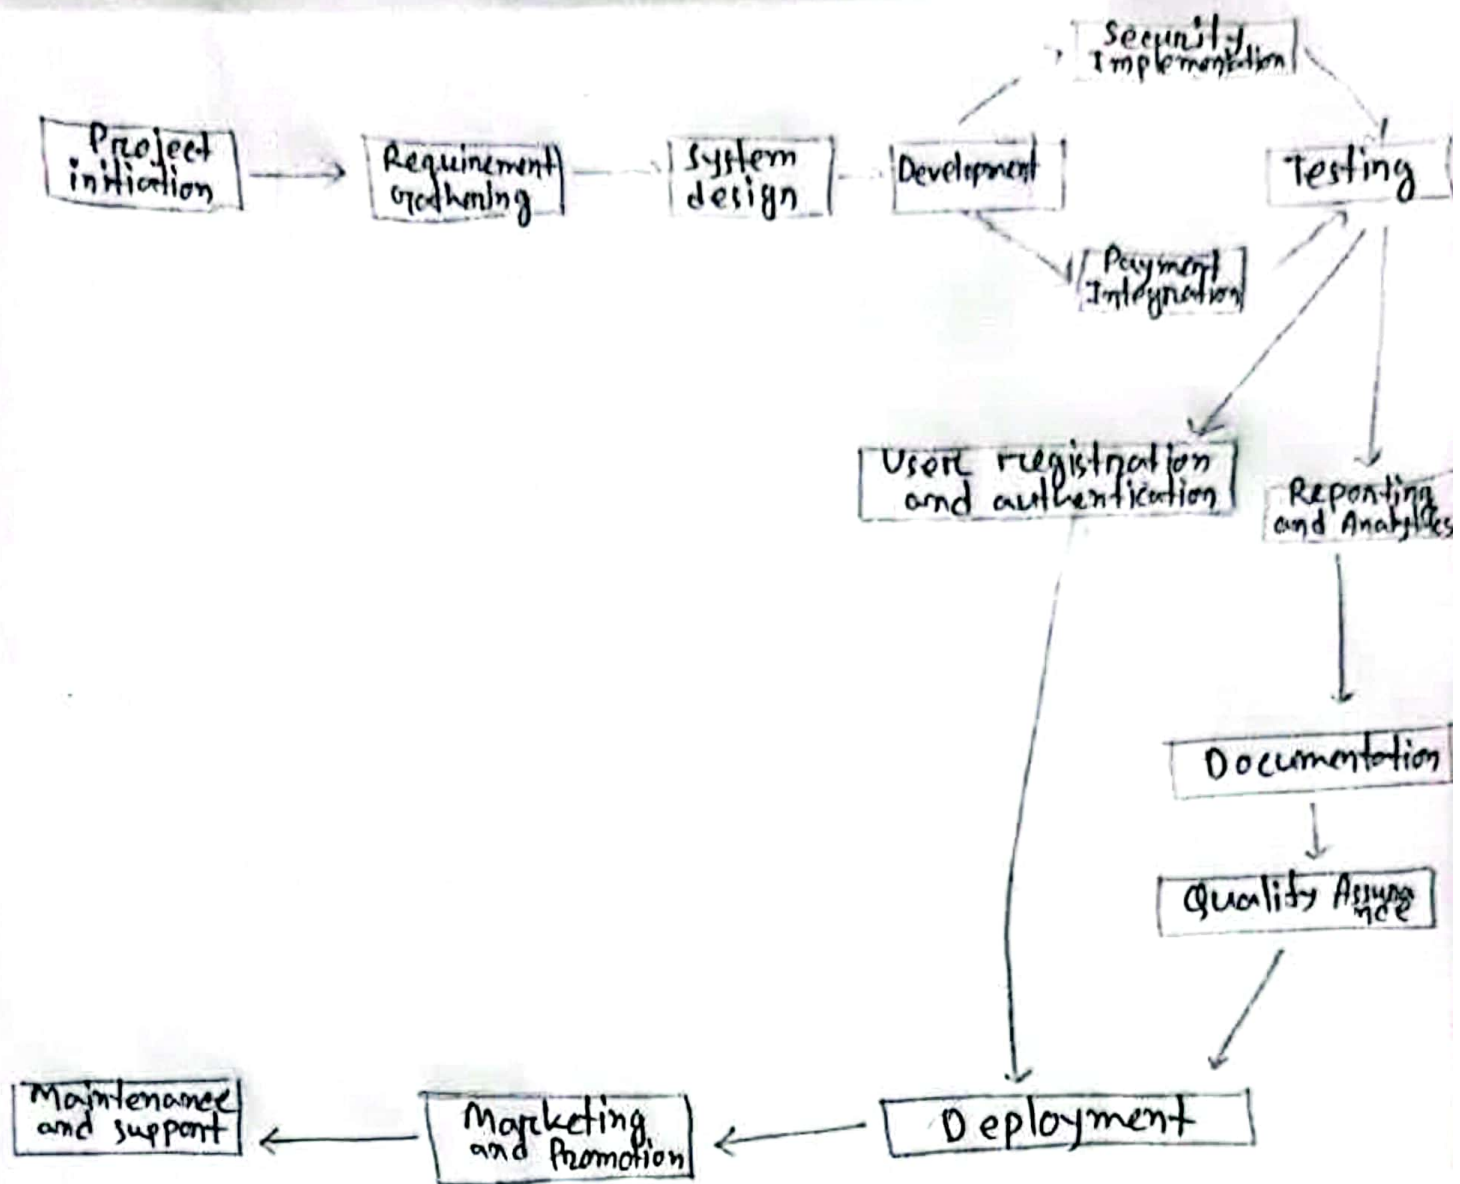 Security
Implementation
Project
initiation
Requirement
Gathering
System
design
Development
Testing
Payment
Integration
User registration
and authentication
Reporting
and Analytics
Documentation
Quality Assura
nce
Maintenance
and support
Marketing
and Promotion
Deployment